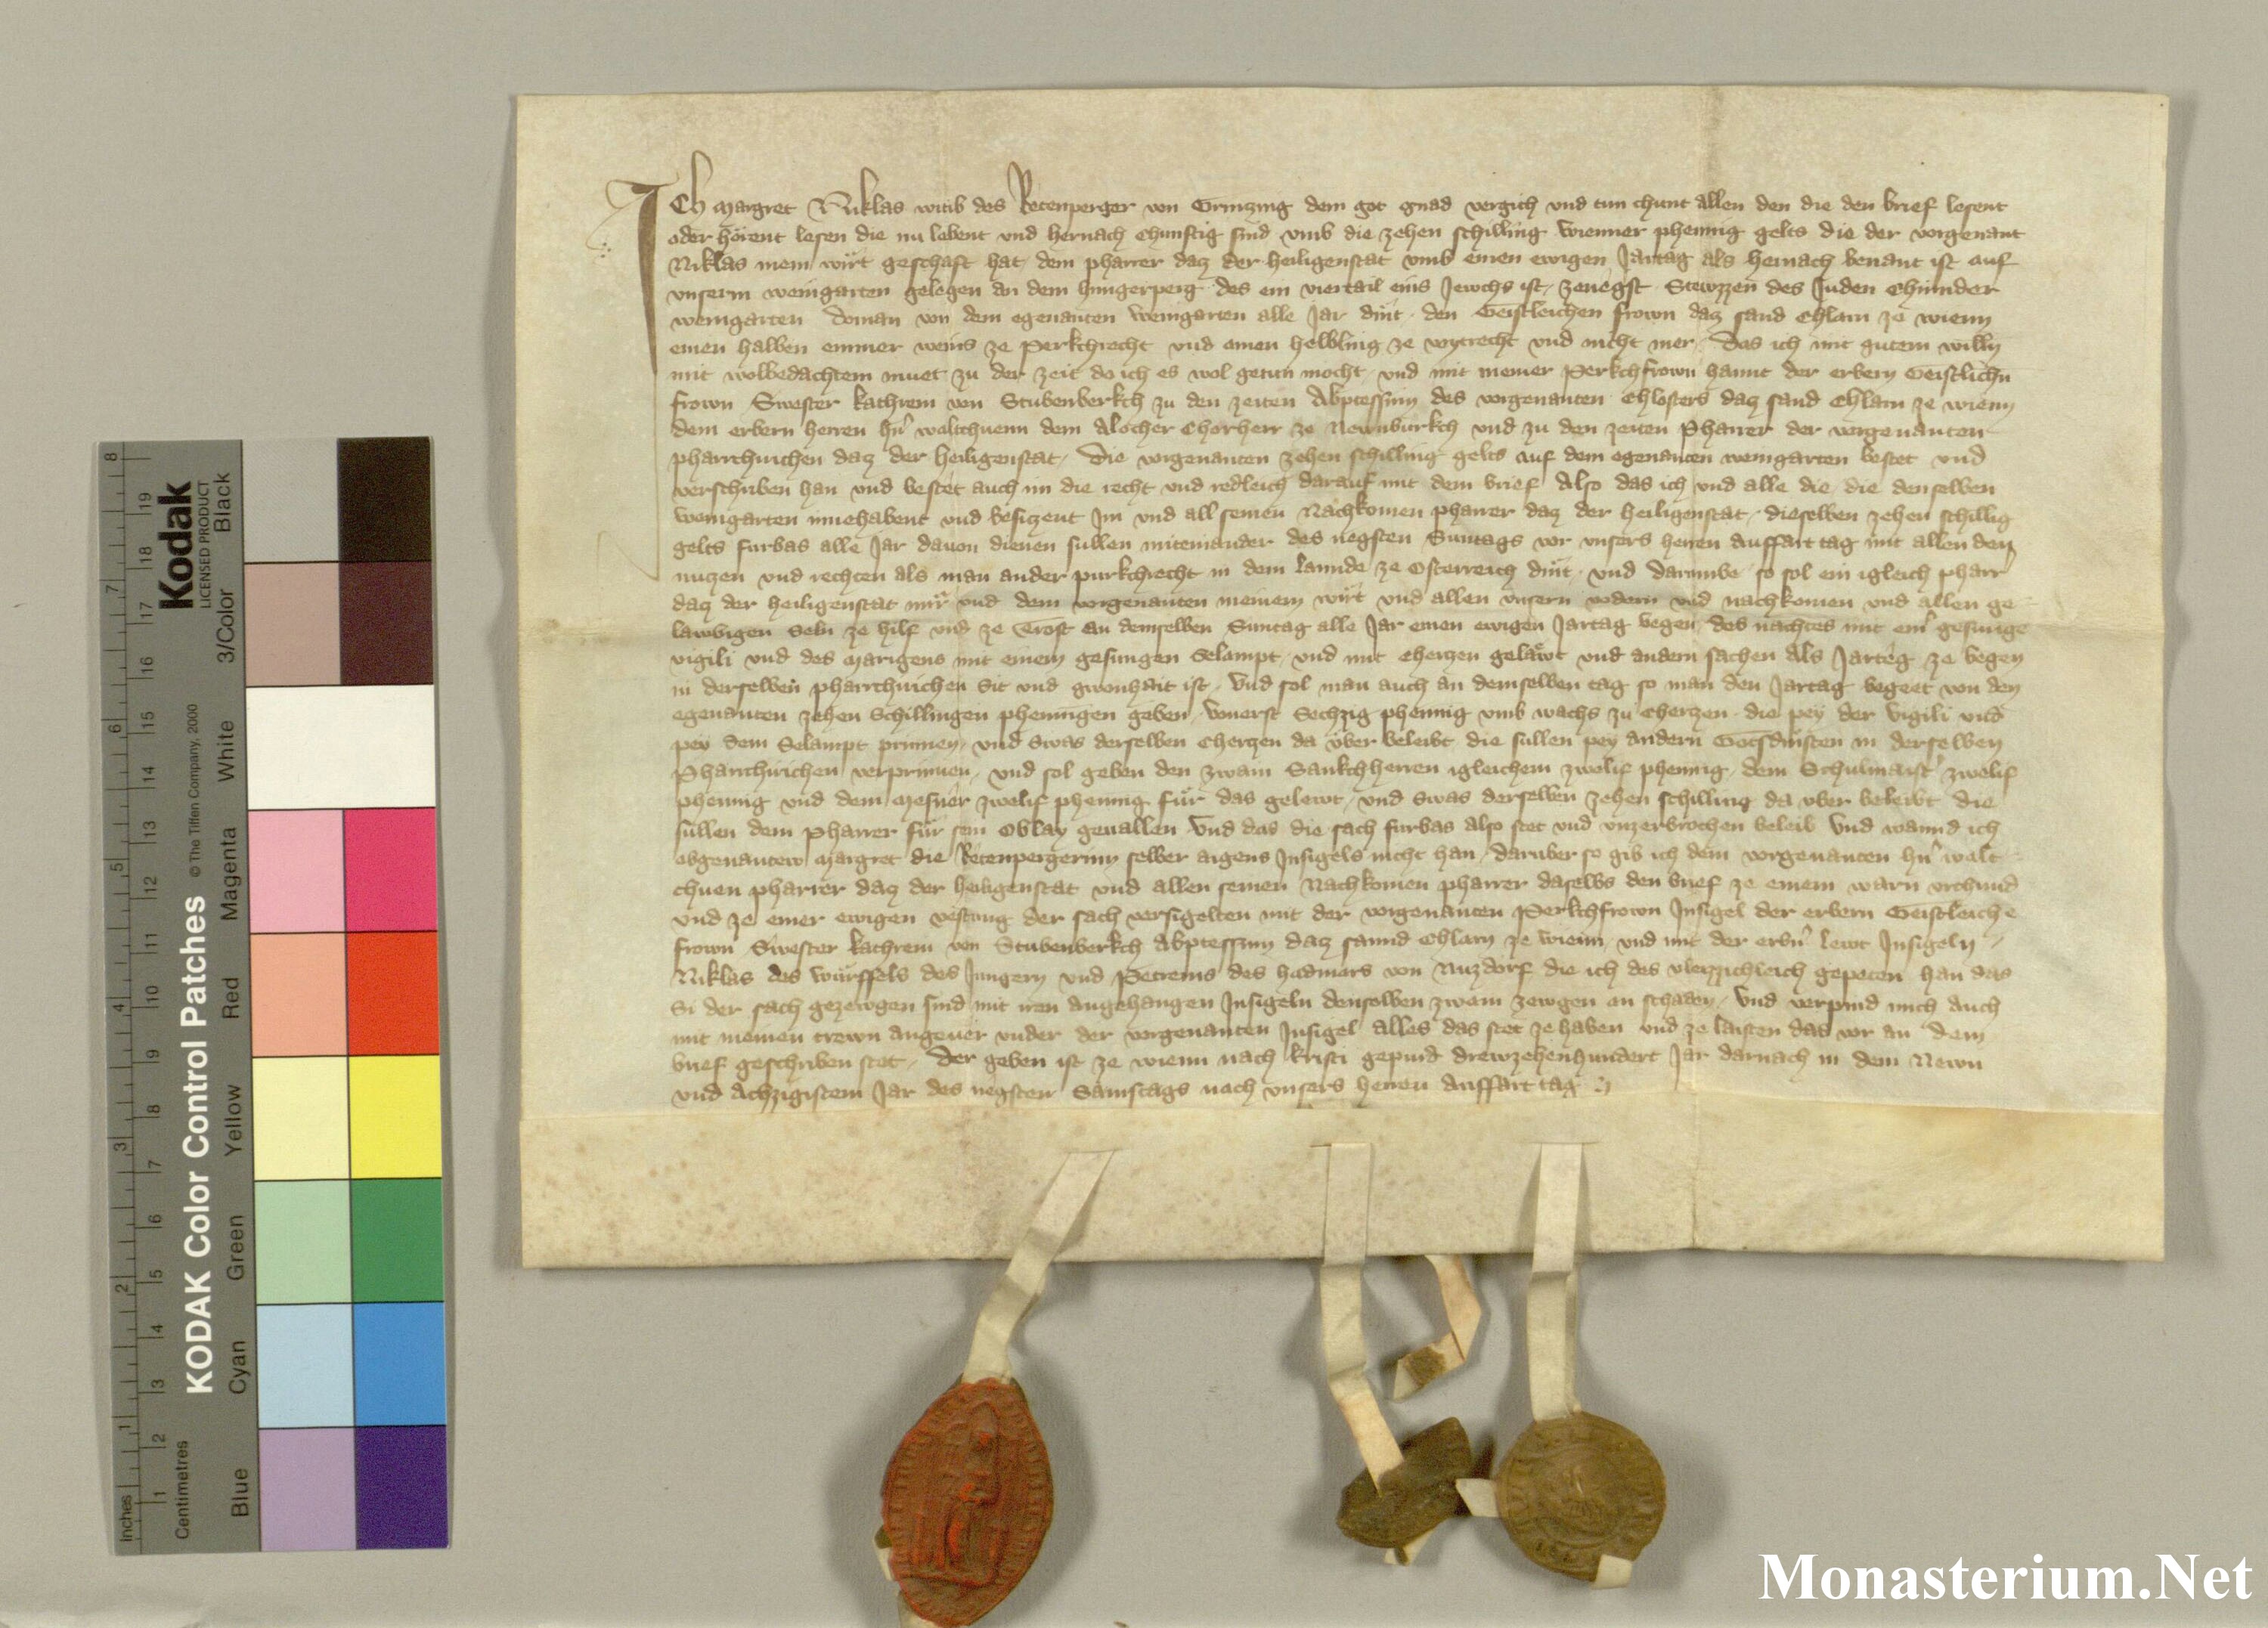 Ich Margret Niklas witib des Retenperger von Grinzing dem got gnad vergich und tun chunt allen den die den brief lesent
oder hörent lesen die nu lebent und hernach chunftig sind umb die zehen schilling wienner phennig gelts die der vorgenant
Niklas mein wirt geschaft hat dem pharrer daz der heiligenstat umb einen ewigen Jartag als hernach benant ist auf
unserm weingarten gelegen an dem hungerperg des ein viertail eins Jewchs ist zenegst des Juden
weingarten von dem egenanten weingarten alle Jar dint den Geistleichen frown daz sand Chlarn ze wienn
einen halben emmer weins ze Perkchrecht und einen helbling ze voytrecht und nicht mer Das ich mit gutem willn
mit wolbedachtem muet zu der zeit do ich es wol getun mocht und mit meiner Perkchfrown hannt der erbern Geistlichn
frown Swester kathrein von Stubenberkch zu den zeiten Abptessinn des vorgenanten Chlosters daz sand Chlarn ze wienn
dem erbern herren hn waltchuenn dem Alocher Chorherr ze Newnburkch und zu den zeiten Pharrer der vorgenanten
pharrchirichen daz der heiligenstat Die vorgenanten zehen schilling gelts auf dem egenanten weingarten bestet und
verschriben han und bestet auch im die recht und redleich darauf mit dem brief Also das ich und alle die die denselben
weingarten innehabent und besiczent Im und all seinen Nachkomen pharrer daz der heiligenstat dieselben zehen schillig
gelts furbas alle Jar davon dienen sullen miteinander des negsten Suntags vor unsers herren Auffart tag mit allen den
nuczen und rechten als man ander purkchrecht in dem lannde ze Osterreich dint und darumbe so sol ein igleich pharr
daz der heiligenstat mir und dem vorgenanten meinem wirt und allen unsern vodern und nachkomen und allen ge
lawbigen Seln ze hilf und ze Trost an demselben Suntag alle Jar einen ewigen Jartag begen des nachtes mit einr gesunge
vigili und des Marigens mit einem gesungen Selampt und mit cherczen gelawt und andern sachen als Jarteg ze begen
in derselben pharrchirichen Sit und gwonhait ist Und sol man auch an demselben tag so man den Jartag begeet von den
egenanten zehen Schillingen phenningen geben vonerst Sechzig phennig umb wachs zu cherczen die pey der Vigili und
pey dem Selampt prinnen und swas derselben Cherczen da uber beleibt die sullen pey andern Gotsdinsten in derselben
Pharrchirichen verprinnen und sol geben den zwain Sankchherren igleichem zwelif phennig dem Schulmaistr zwelif
phennig und dem Mesner zwelif phennig für das gelewt und swas derselben zehen schilling da uber beleibt die
sullen dem Pharrer für sein Oblay gevallen Und das die sach furbas also stet und unzerbrochen beleib Und wannd ich
obgenantew Margret die Retenpergerinn selber aigens Insigels nicht han daruber so gib ich dem vorgenanten hn walt
chuen pharrer daz der heiligenstat und allen seinen Nachkomen pharrer daselbs den brief ze einem warn urchund
und ze einer ewigen vestung der sach versigelten mit der vorgenanten Perkchfrown Insigel der erbern Geistleiche
frown Swester kathrein von Stubenberkch Abptessinn daz sannd Chlarn ze wienn und mit der erbn lewt Insigeln
Niklas des würffels des Jungern und Petreins des hadmars von Nuzdorf die ich des vleizzichleich gepeten han das
Si der sach gezewgen sind mit iren angehangen Insigeln denselben zwain zewgen an schaden Und verpind mich auch
mit meinen trewn angever under der vorgenanten Insigel alles das stet ze haben und ze laisten das vor an dem
brief geschriben stet Der geben ist ze wienn nach Kristi gepurd drewzehenhundert Jar darnach in dem Newn
und Achzigistem Jar des negsten Samstags nach unsers herren Auffart tag
Kodak
LICENSED PRODUCT
KODAK Color Control Patches
© The Tiffen Company, 2000
Inches 1 2 3 4 5 6 7 8
Centimetres 1 2 3 4 5 6 7 8 9 10 11 12 13 14 15 16 17 18 19
Blue Cyan Green Yellow Red Magenta White 3/Color Black
Monasterium.Net